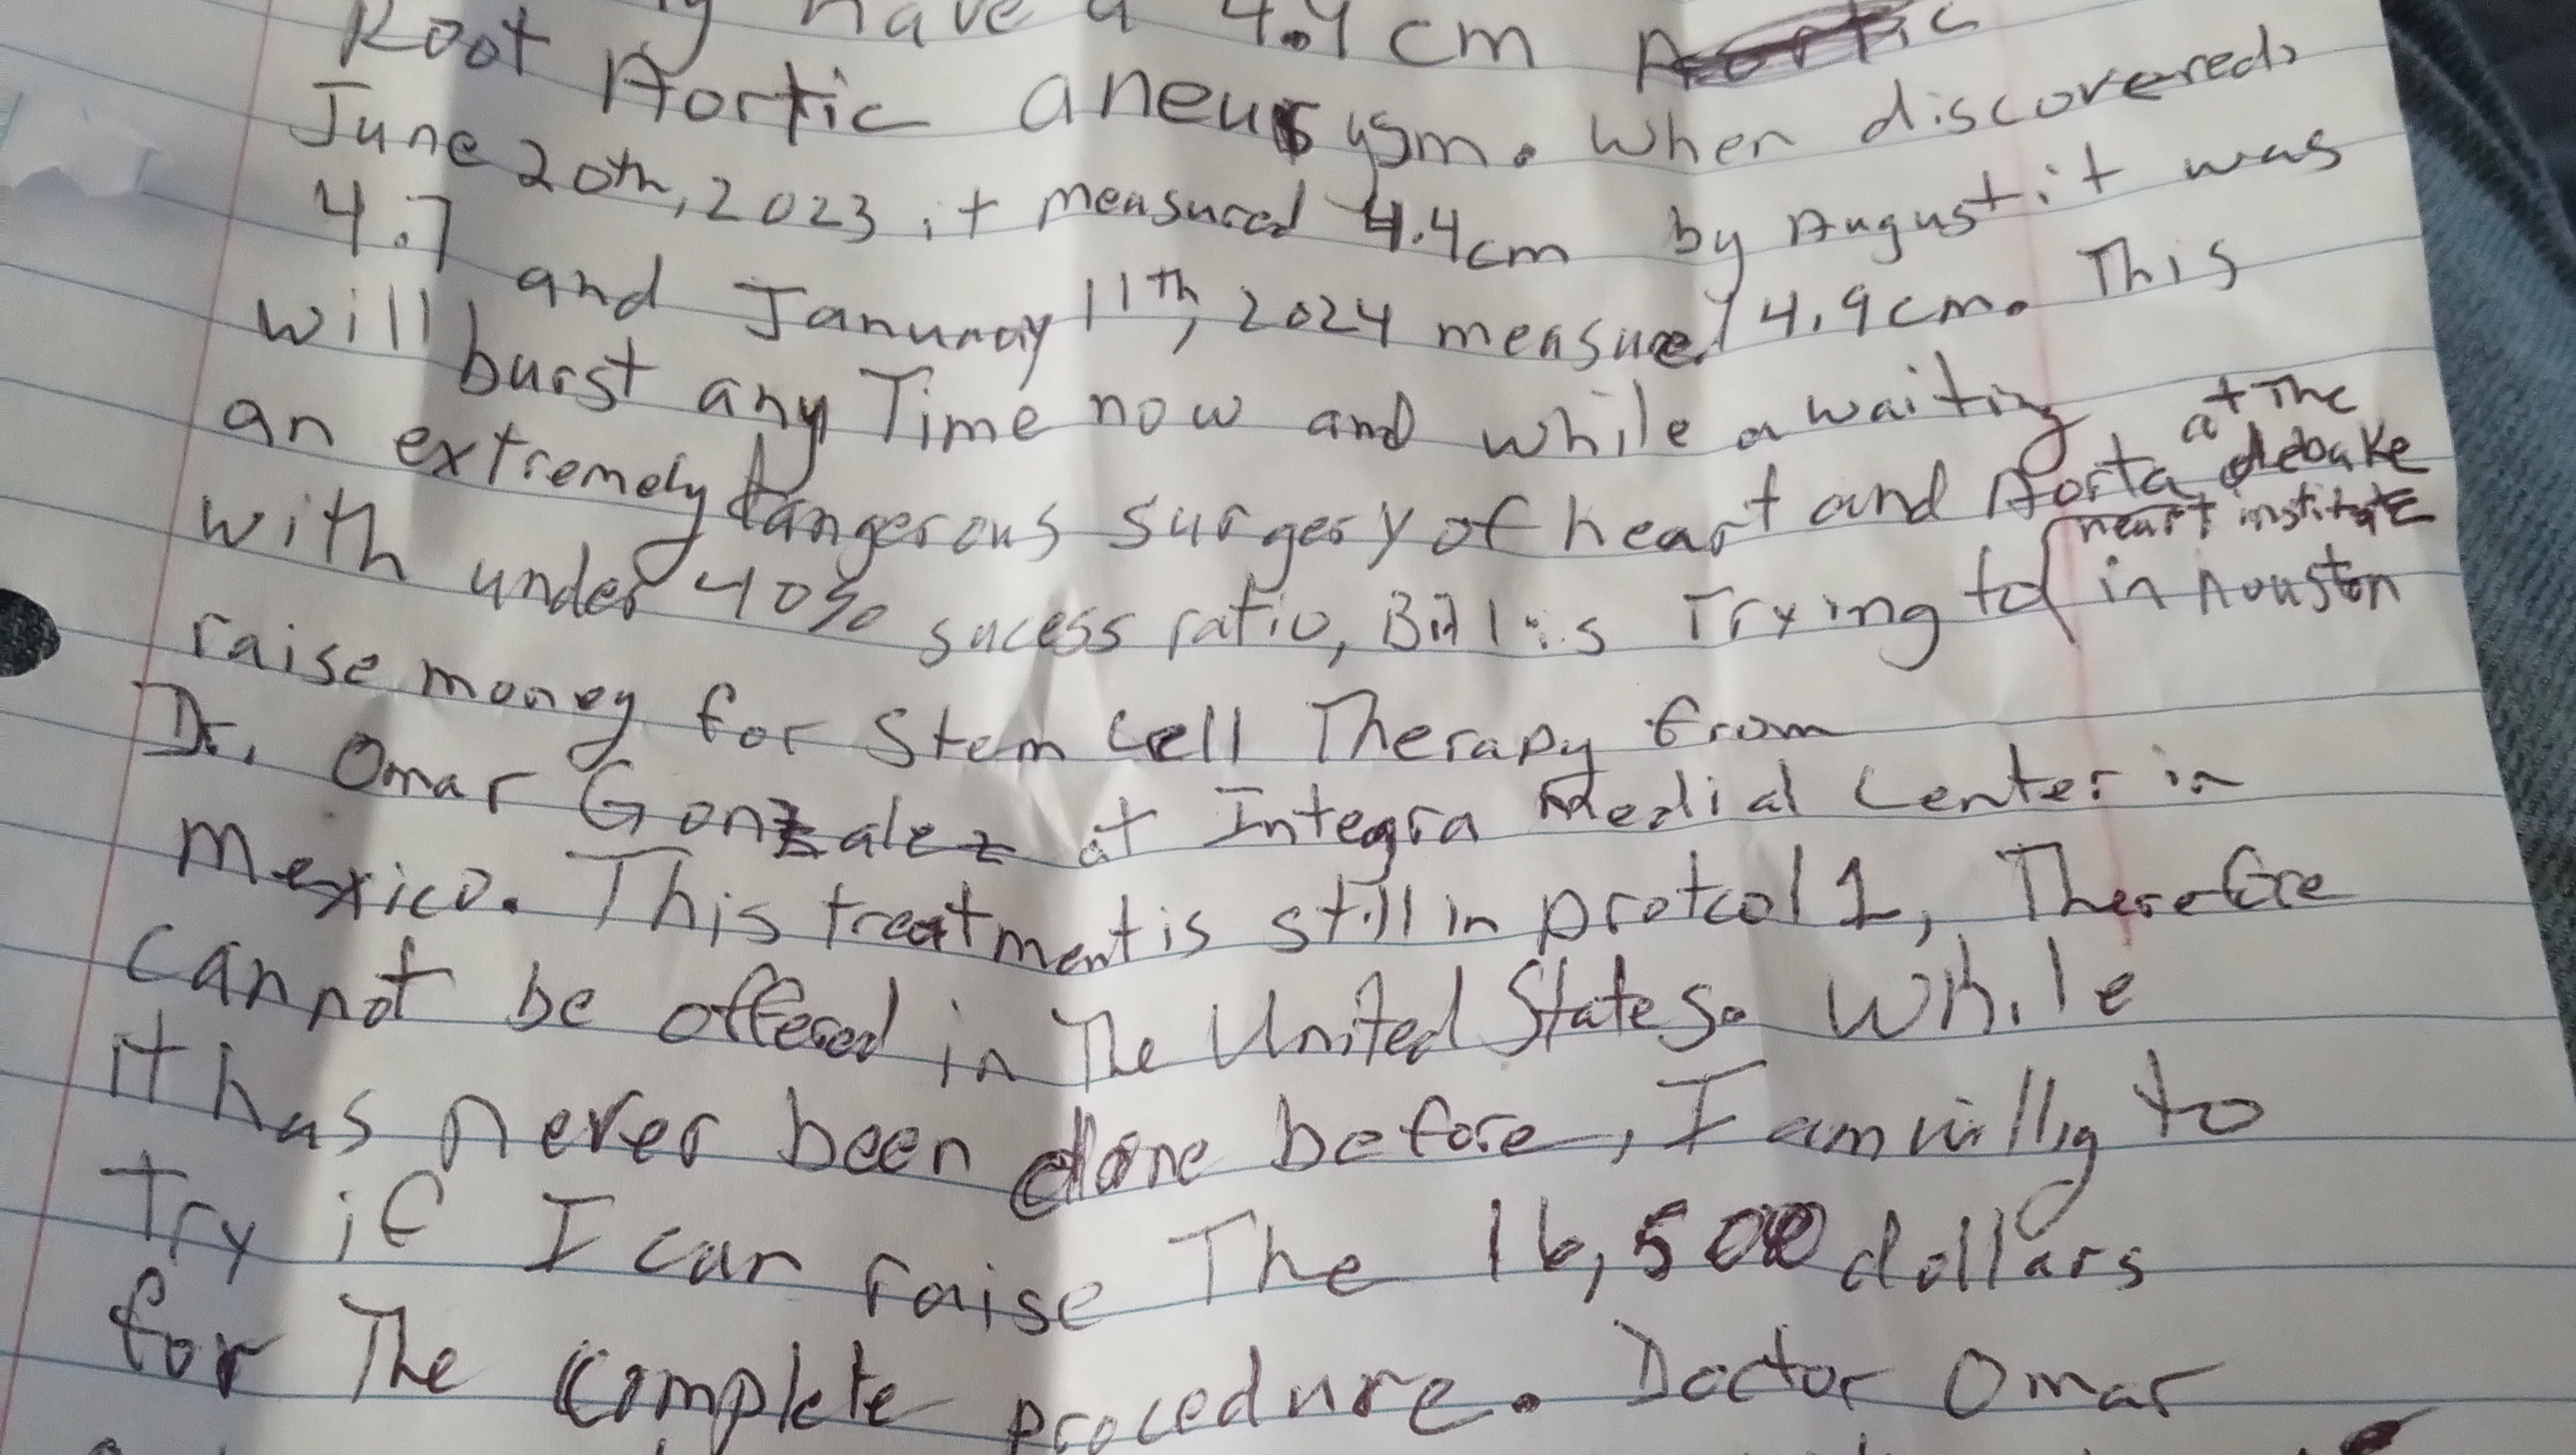 have a 4.9 cm Aortic
Root Aortic aneurysm. When discovered
June 20th, 2023 it measured 4.4cm by August it was
4.7 and January 11th, 2024 measured 4.9cm. This
will burst any Time now and while awaiting
an extremely dangerous surgery of heart and Aorta at The debake
heart institute
with under 40% sucess ratio, Bill is Trying to in houston
raise money for Stem Cell Therapy from
Dr. Omar Gonzalez at Integra Medial Center in
Mexico. This treatment is still in protcol 1, Therefore
cannot be offered in The United States. While
it has never been done before, I am willig to
Try if I can raise The 16,500 dollars
for The complete procedure. Doctor Omar